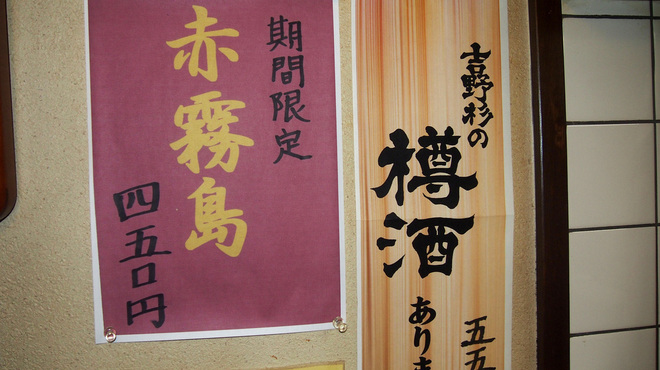 期間限定
赤霧島
四五〇円
吉野杉の
樽酒
あります
五五